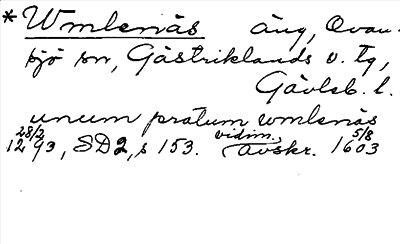 * Wmlenäs äng, Ovan-
sjö sn, Gästriklands v. tg,
Gävleb. l.
unum pratum wmlenäs
28/2 1293, SD2, s 153. vidim. Avskr. 5/8 1603